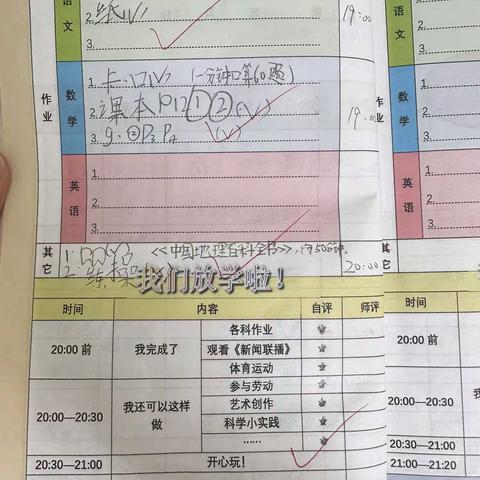 语文
2.
19:00
3.
作业
数学
1.卡、口√ (一分钟口算60题)
2.课本P12①②(√)
19:00
3.
(√)
英语
1.
2.
3.
其它
1.阅
《中国地理百科全书》,约50分钟.
2.练
20:00
我们放学啦!
时间 内容 自评 师评
20:00前 我完成了 各科作业
观看《新闻联播》
体育运动
20:00—20:30 我还可以这样做 参与劳动
艺术创作
科学小实践
……
20:30—21:00 开心玩!
语文
1.
2.
3.
作业
数学
1.
2.
3.
英语
1.
2.
3.
其它
时间
20:00前
20:00—20:30
20:30—21:00
21:00—21:20